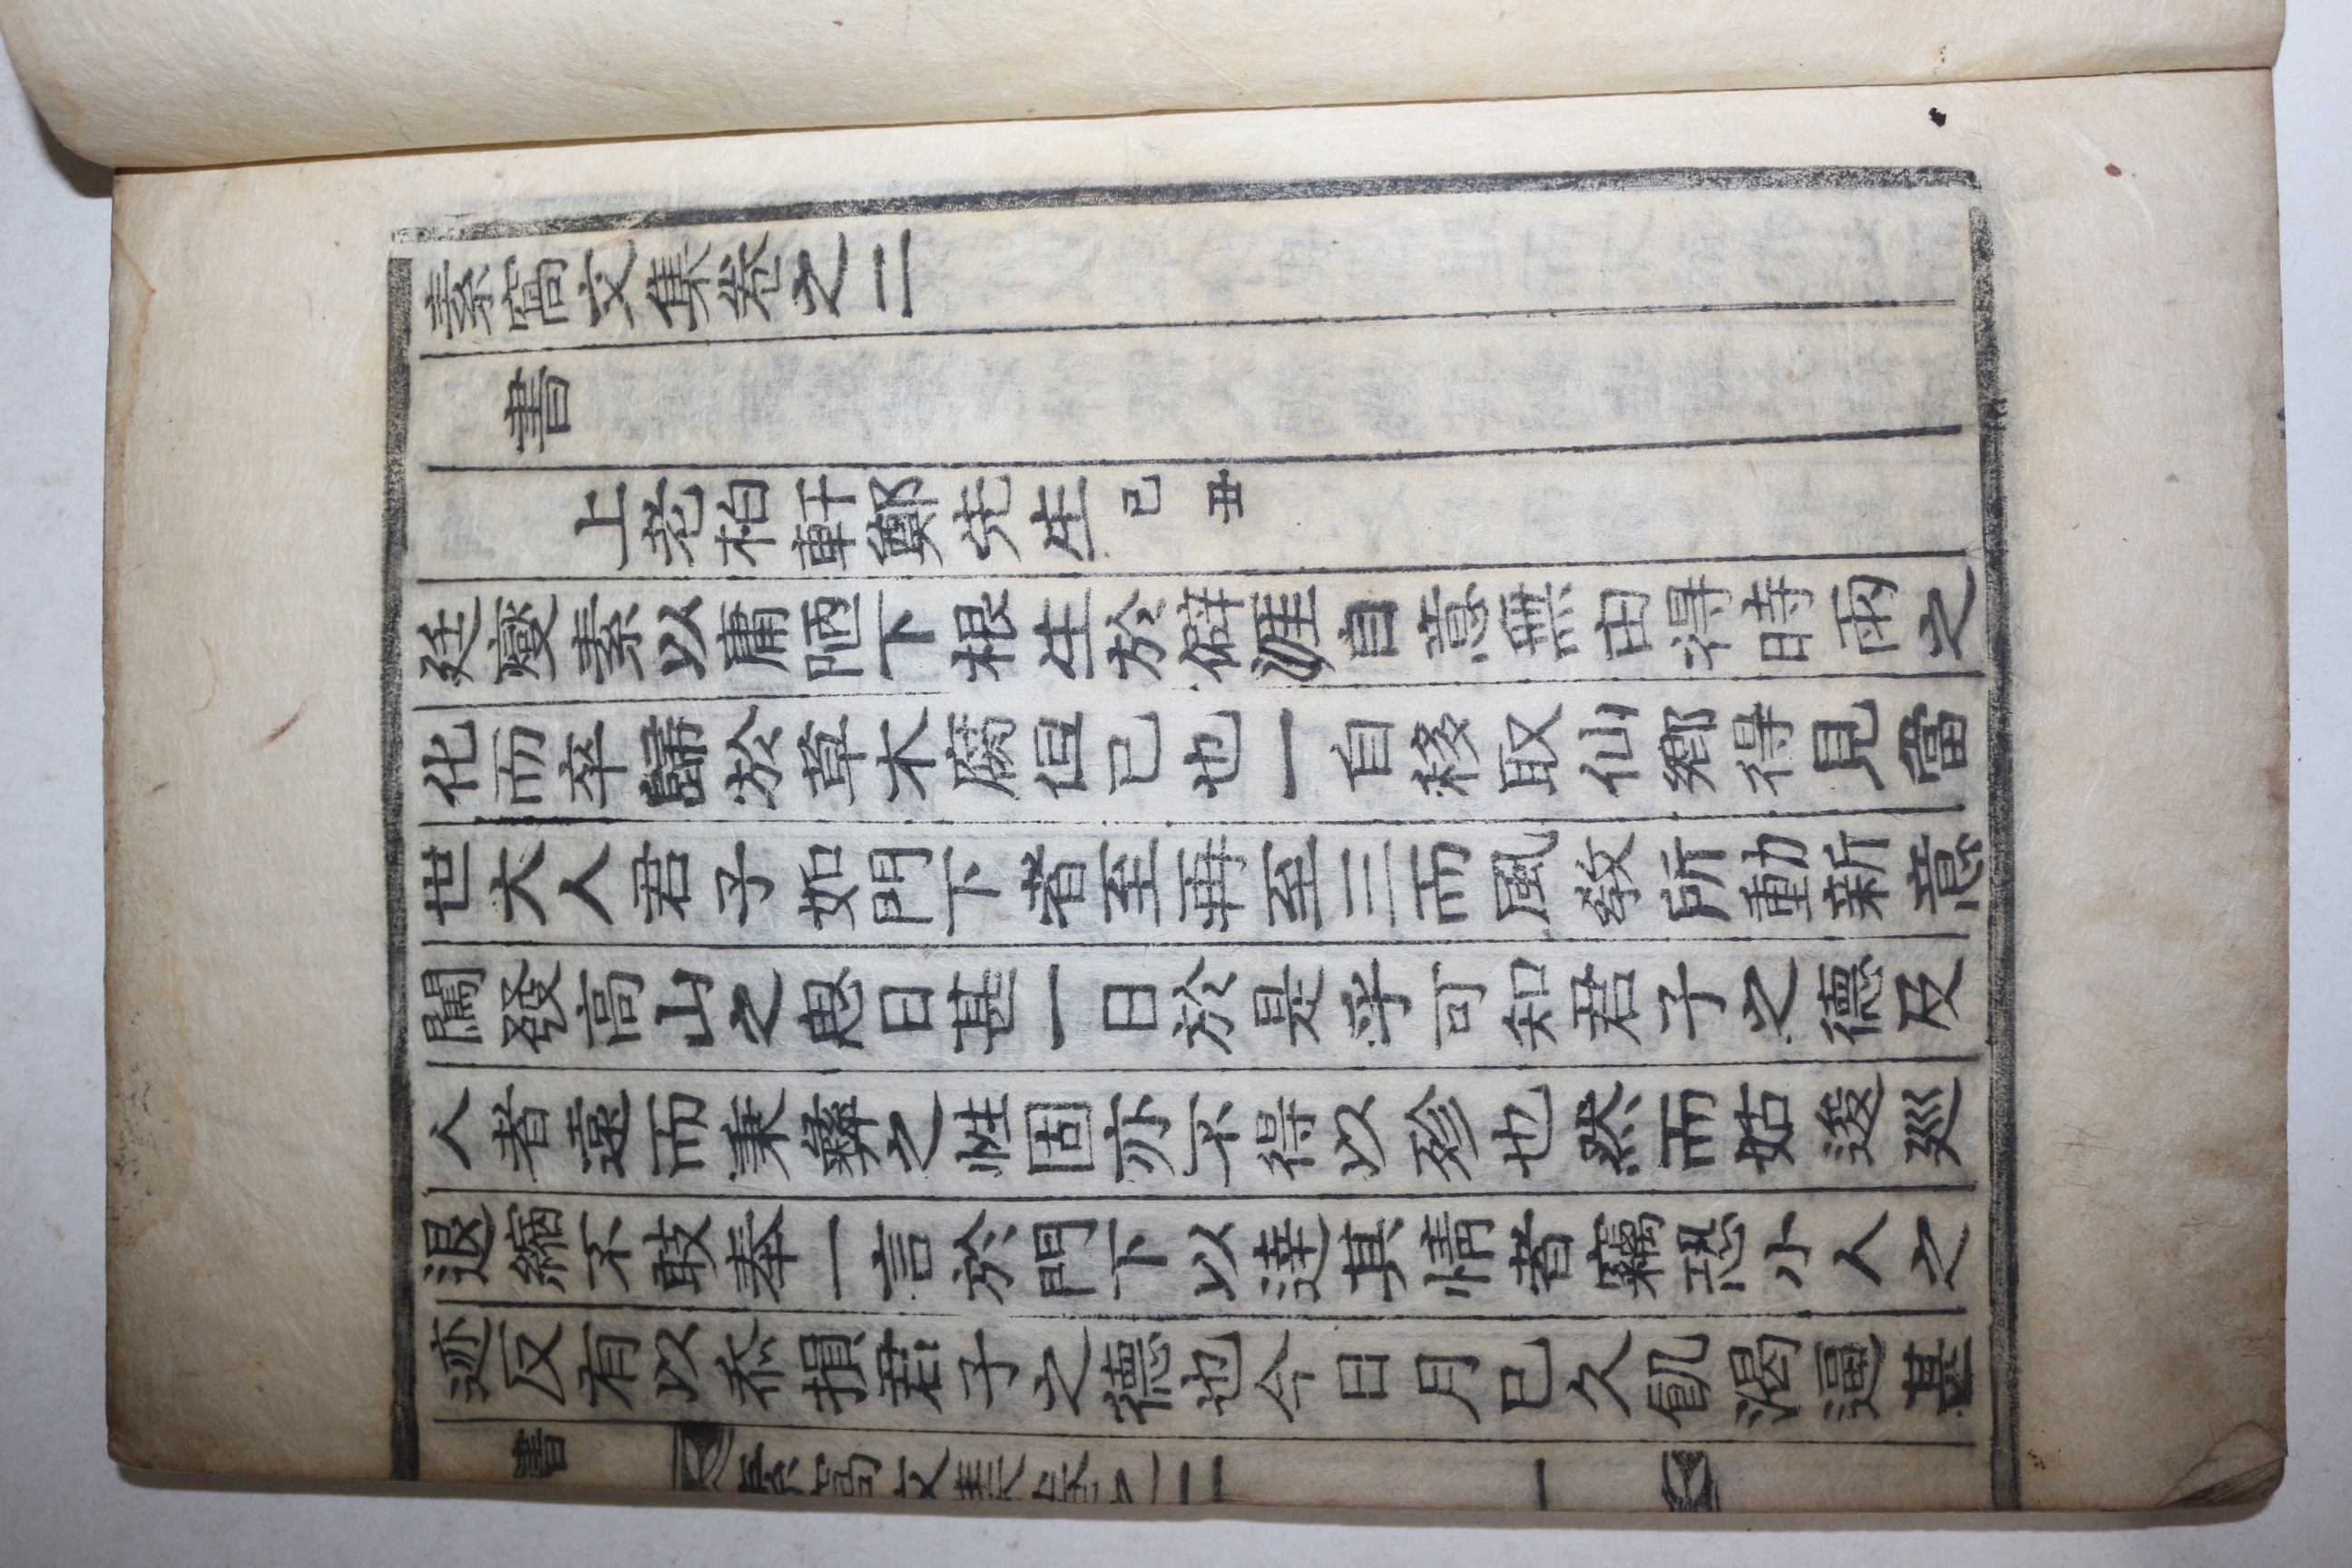 素窩文集卷之二
書
上老柏軒鄭先生 己丑
廷燮素以庸陋下根生於僻涯自意無由得時雨之
化而卒歸於草木腐但已也一自移取仙鄕得見當
世大人君子如門下者至再至三而風敎所動新意
闖發高山之思日甚一日於是乎可知君子之德及
人者遠而秉彝之性固亦不得以殄也然而姑逡巡
退縮不敢奉一言於門下以達其情者竊恐小人之
迹反有以忝損君子之德也今日月已久飢渴逼甚
書 素窩文集卷之二 一